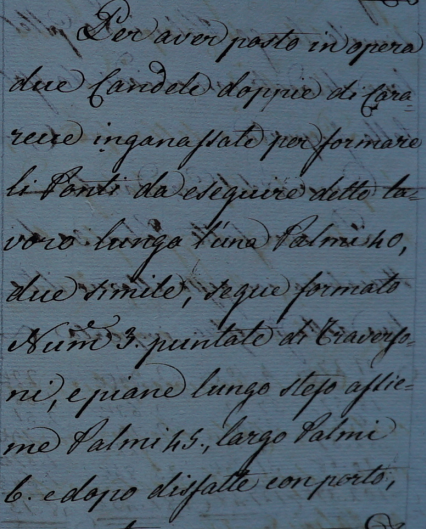 Per aver posto in opera
due Candele doppie di Cara-
recce inganassate per formare
li Ponti da eseguire detto la-
voro lunga l'una Palmi 40,
due simile, segue formato
Num. 3. puntate di Traverso-
ni, e piane lungo steso assie-
me Palmi 45., largo Palmi
6. e dopo disfatte con porto,